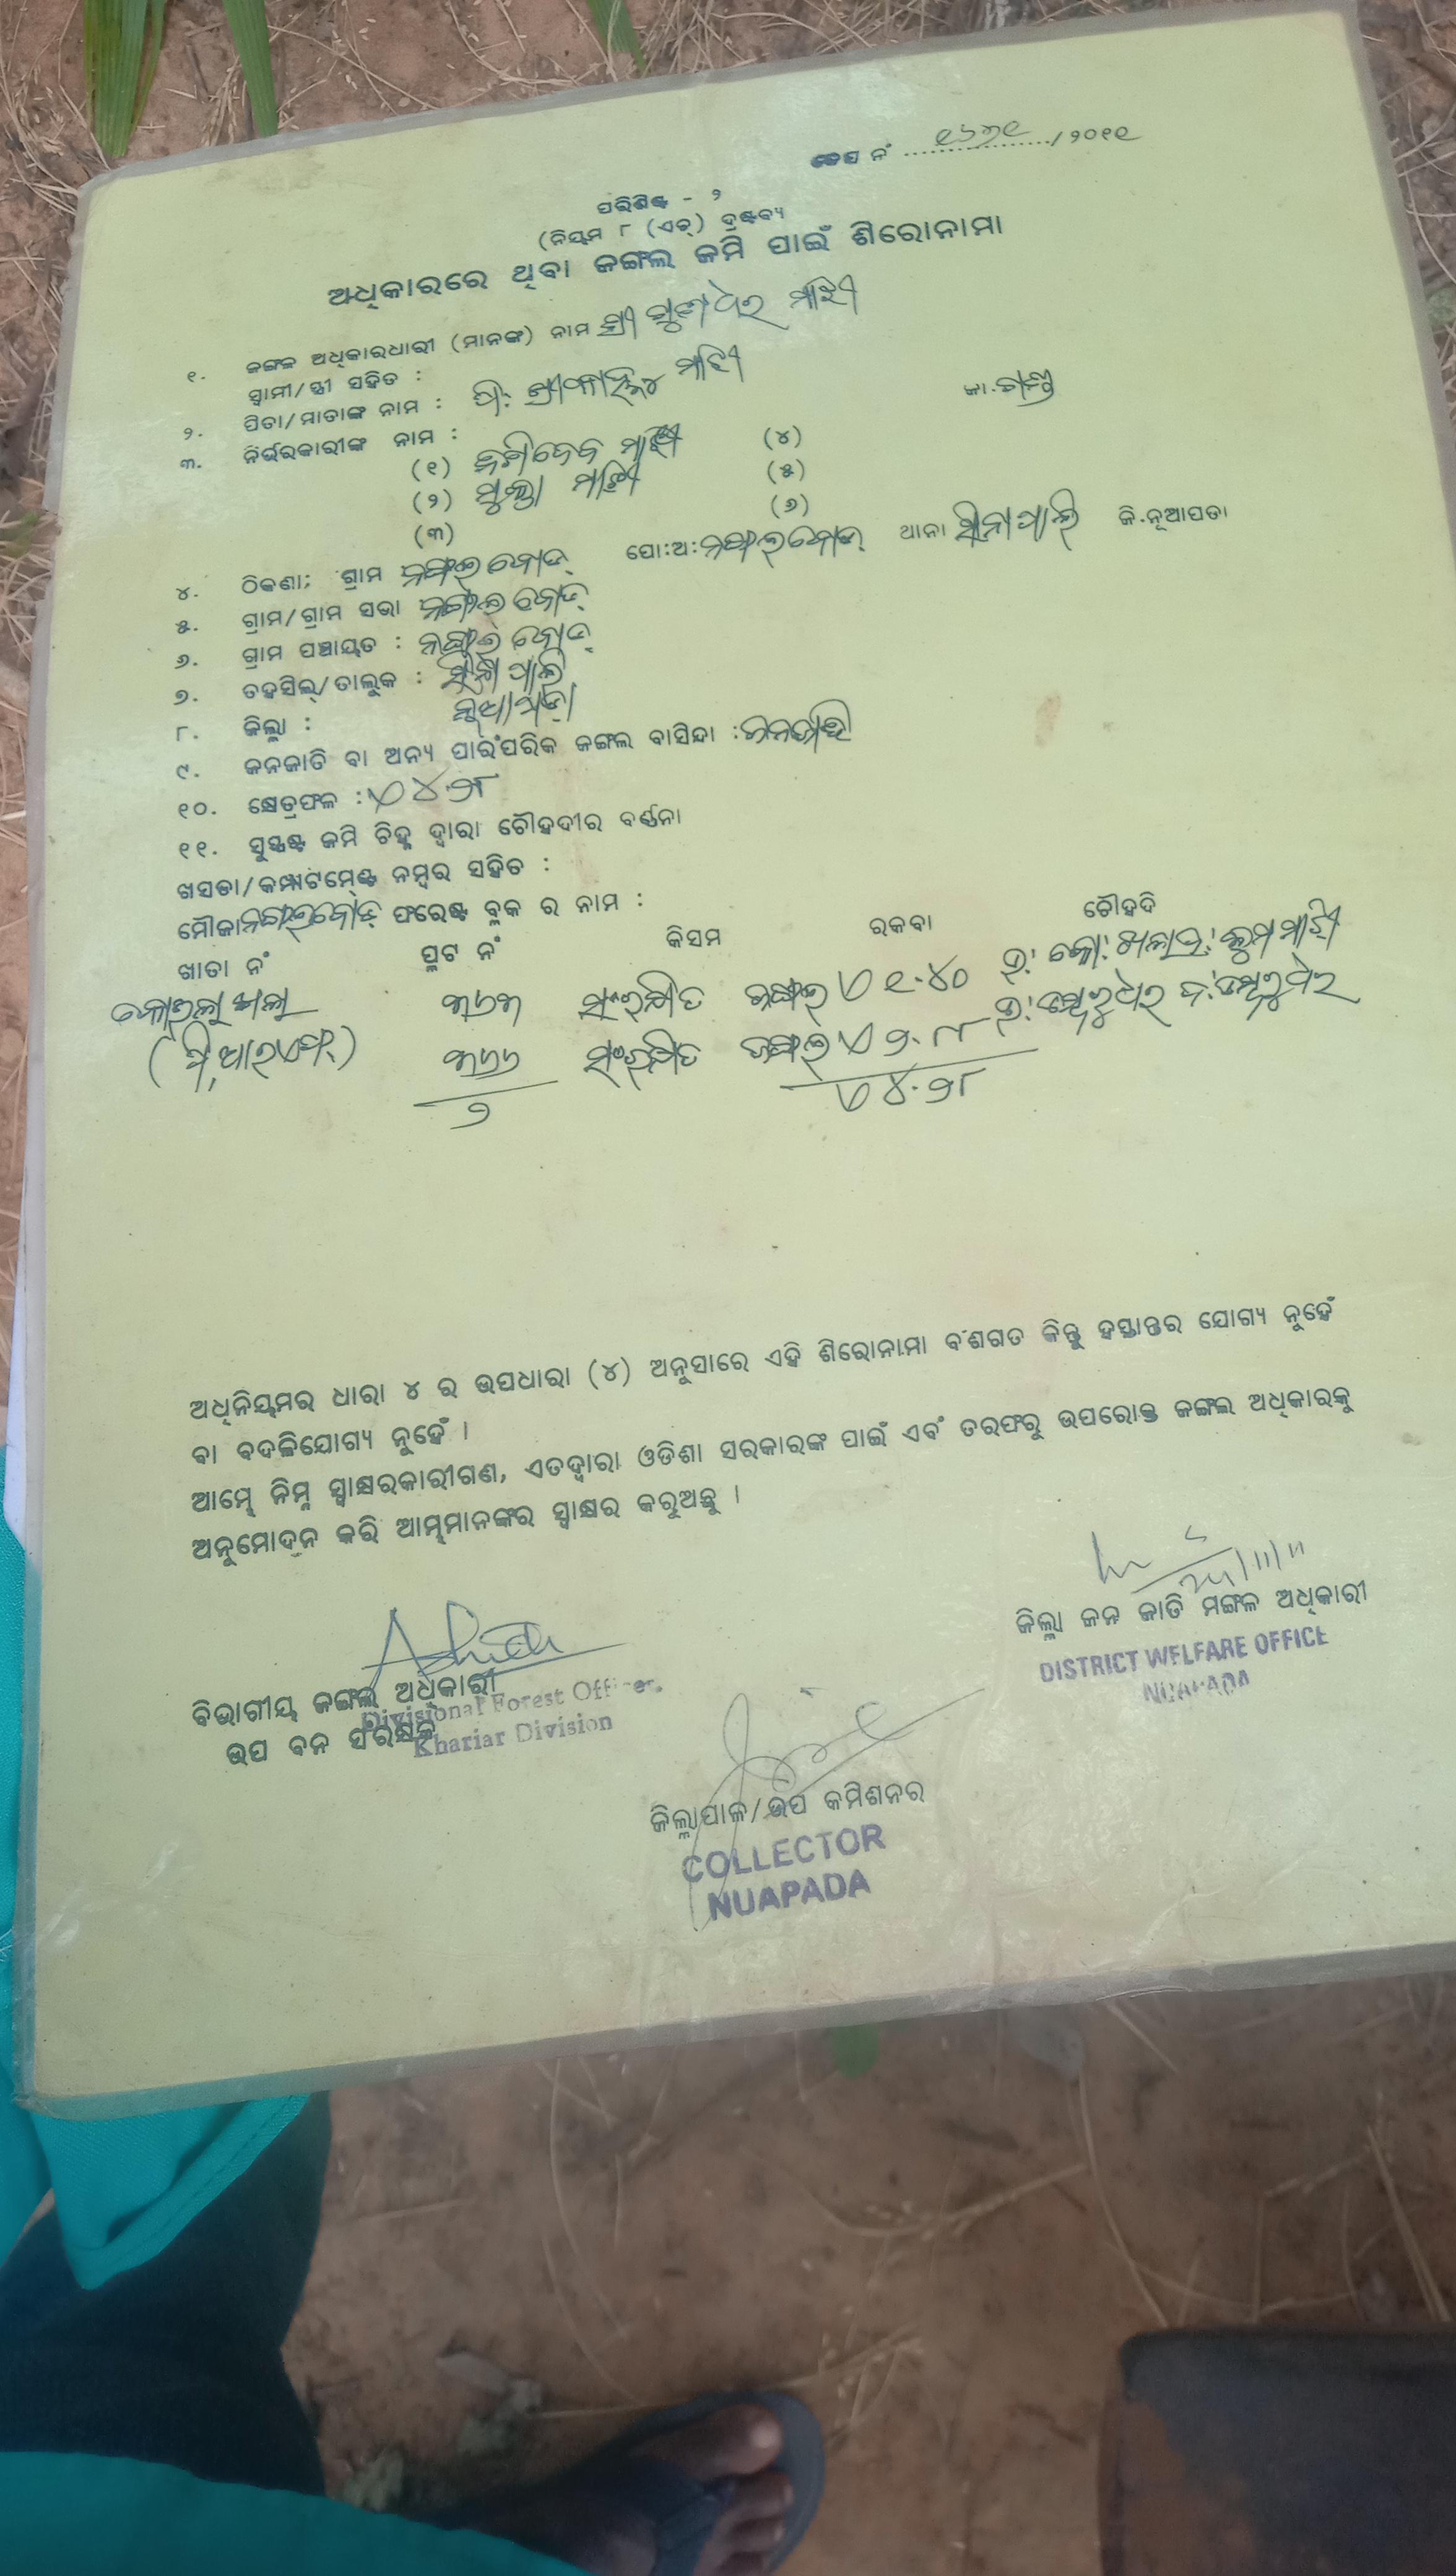 କେସ ନଂ ୧୬୩୧/୨୦୧୧
ପରିଶିଷ୍ଟ - ୨
(ନିୟମ ୮ (ଏଚ୍) ଦ୍ରଷ୍ଟବ୍ୟ
ଅଧିକାରରେ ଥିବା ଜଙ୍ଗଲ ଜମି ପାଇଁ ଶିରୋନାମା
୧. ଜଙ୍ଗଳ ଅଧିକାରଧାରୀ (ମାନଙ୍କ) ନାମ ଶ୍ରୀ ଗୁଣଧର ମାଝୀ
ସ୍ଵାମୀ/ସ୍ତ୍ରୀ ସହିତ :
୨. ପିତା/ମାତାଙ୍କ ନାମ : ପି: ମାଝୀ ଜା.
୩. ନିର୍ଭରକାରୀଙ୍କ ନାମ :
(୧) ମାଝୀ (୪)
(୨) ମାଝୀ (୫)
(୩) (୬)
୪. ଠିକଣା; ଗ୍ରାମ ନଙ୍ଗଲବୋଡ୍ ପୋ:ଅ: ନଙ୍ଗଲବୋଡ୍ ଥାନା ସିନାପାଲି ଜି.ନୂଆପଡା
୫. ଗ୍ରାମ/ଗ୍ରାମ ସଭା ନଙ୍ଗଲବୋଡ୍
୬. ଗ୍ରାମ ପଞ୍ଚାୟତ : ନଙ୍ଗଲବୋଡ୍
୭. ତହସିଲ୍/ତାଲୁକ : ସିନାପାଲି
୮. ଜିଲ୍ଲା : ନୂଆପଡ଼ା
୯. ଜନଜାତି ବା ଅନ୍ୟ ପାରଂପରିକ ଜଙ୍ଗଲ ବାସିନ୍ଦା : ଜନଜାତି
୧୦. କ୍ଷେତ୍ରଫଳ : ୪.୨୮
୧୧. ସୁସ୍ପଷ୍ଟ ଜମି ଚିହ୍ନ ଦ୍ଵାରା ଚୌହଦୀର ବର୍ଣ୍ଣନା
ଖସଡା/କମ୍ପାଟମେଣ୍ଟ ନମ୍ବର ସହିତ :
ମୌଜା ନଙ୍ଗଲବୋଡ୍ ଫରେଷ୍ଟ ବ୍ଲକ ର ନାମ :
ଖାତା ନଂ ପ୍ଲଟ ନଂ କିସମ ରକବା ଚୌହଦି
୩୬୩ ସଂରକ୍ଷିତ ଜଙ୍ଗଲ ୧.୪୦ ମାଝୀ
(ପି,ଆରଏଫ୍) ୩୬୬ ସଂରକ୍ଷିତ ଜଙ୍ଗଲ ୨.୮୮
୨ ୪.୨୮
ଅଧିନିୟମର ଧାରା ୪ ର ଉପଧାରା (୪) ଅନୁସାରେ ଏହି ଶିରୋନାମା ବଂଶଗତ କିନ୍ତୁ ହସ୍ତାନ୍ତର ଯୋଗ୍ୟ ନୁହେଁ
ବା ବଦଳିଯୋଗ୍ୟ ନୁହେଁ ।
ଆମ୍ଭେ ନିମ୍ନ ସ୍ଵାକ୍ଷରକାରୀଗଣ, ଏତଦ୍ଵାରା ଓଡିଶା ସରକାରଙ୍କ ପାଇଁ ଏବଂ ତରଫରୁ ଉପରୋକ୍ତ ଜଙ୍ଗଲ ଅଧିକାରକୁ
ଅନୁମୋଦନ କରି ଆମ୍ଭମାନଙ୍କର ସ୍ଵାକ୍ଷର କରୁଅଛୁ ।
ଜିଲ୍ଲା ଜନ ଜାତି ମଙ୍ଗଳ ଅଧିକାରୀ
DISTRICT WELFARE OFFICE
NUAPADA
ବିଭାଗୀୟ ଜଙ୍ଗଲ ଅଧିକାରୀ
Divisional Forest Officer
ଉପ ବନ ସଂରକ୍ଷକ
Khariar Division
ଜିଲ୍ଲାପାଳ/ଉପ କମିଶନର
COLLECTOR
NUAPADA